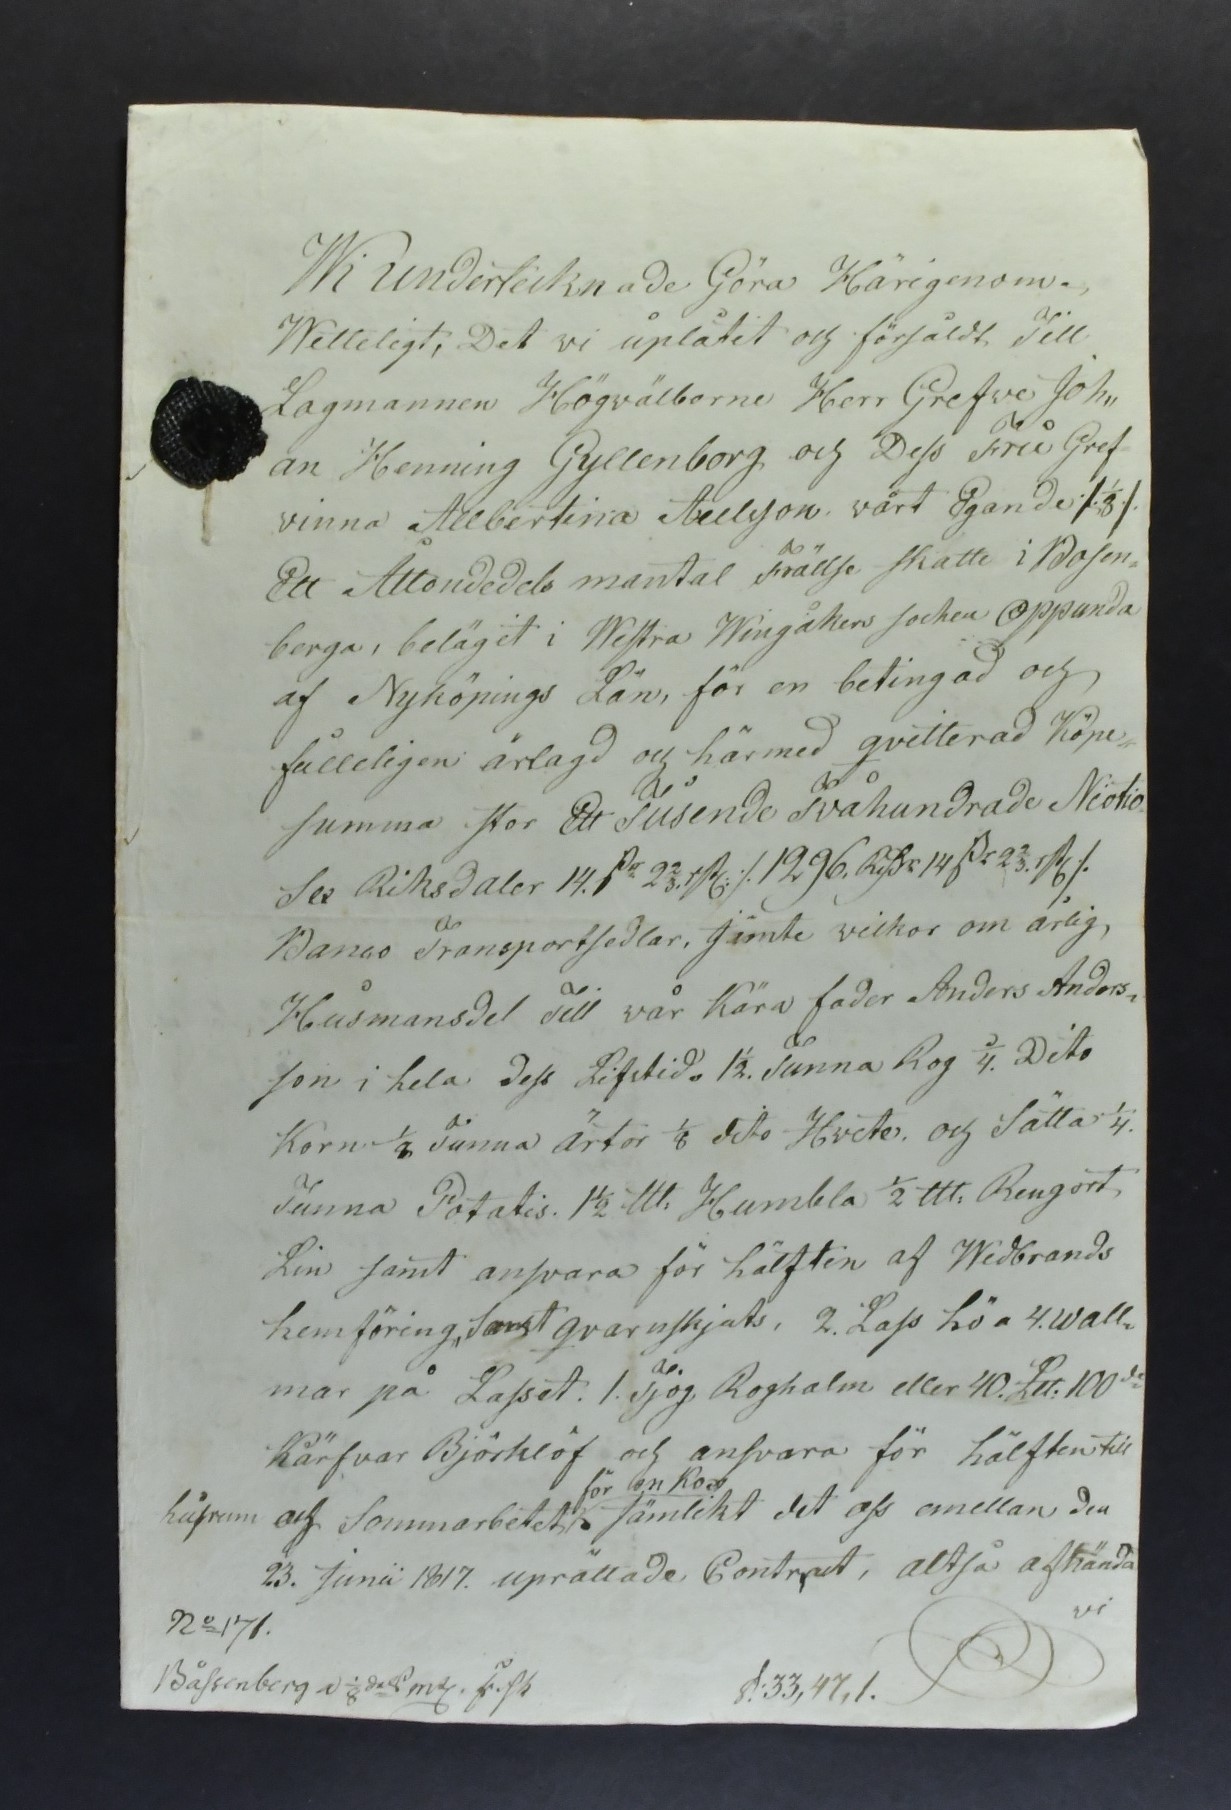 Wi Underteiknade Göra Härigenom
Wetteligt, Det vi uplåtit och försåldt Till
Lagmannen Högvälborne Herr Grefve Joh„
an Henning Gyllenborg och Dess Fru Gref
vinna Allbertina Aulyson. vårt Egande /:1/8:/.
Ett Åttondedels mantal Frällse skatte i Bosen„
berga, beläget i Westra Wingåkers sochen Oppunda
af Nyköpings Län, för en betingad och
fulleligen ärlagd och härmed qvitterad Köpe„
summa stor Ett Tusende Tvåhundrade Niotio
Sex Riksdaler 14. s 2 2/3. rst: /. 1296. Rdr 14 s 2 2/3. rst /.
Banco Transportsedlar, Jämte vilkor om årlig
Husmansdel Till vår Kära fader Anders Anders„
son i hela dess Lifstid. 1 1/2. Tunna Rog 3/4. Dito
Korn 1/8 Tunna Ärtor 1/8 dito Hvete. och Sätta 1/4.
Tunna Potatis. 1 1/2 ltt: Humbla 1/2 ltt: Rengort
Lin samt ansvara för hälften af Wedbrands
hemföring, Samt qvarnskjuts, 2. Lass hö a 4. wall„
mar på Lasset. 1. Tjog Roghalm eller 40. Ltt: 100de
Kärfvar Björklöf och ansvara för hälften till
för en Ko
husrum och Sommarbetet sämlikt det oss emellan den
23. Junii 1817. uprättade Contract, altså afhända
vi
No 171.
Båssenberg a 1/8 dels mtl. F. sk
s: 33, 47, 1.